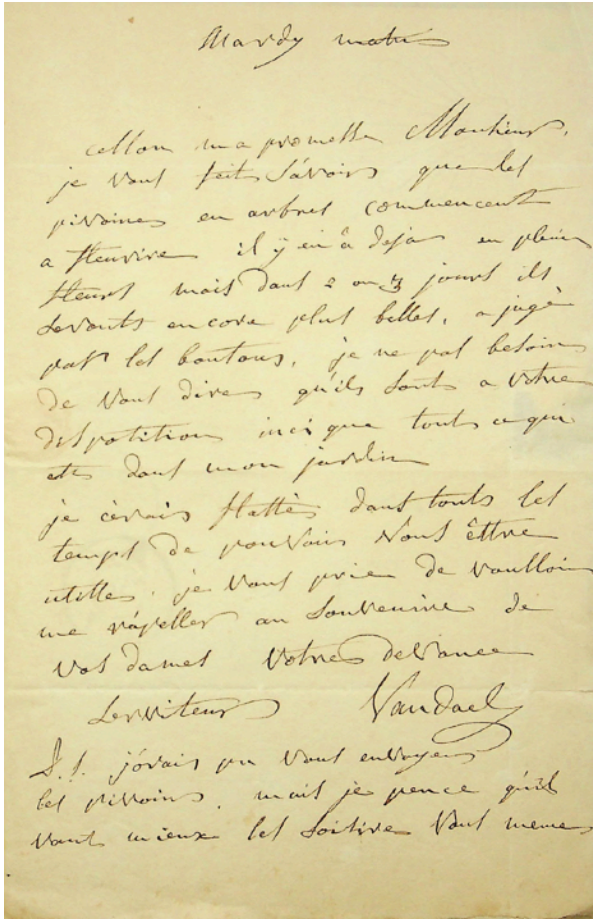 Mardy matin
cellon ma promesse Monsieur,
je vous fait Sávoire que les
pivoines en arbres commencent
a fleurire il y en â dejas en plein
fleurs mais dans 2 ou 3 jours ils
seronts encore plus belles, a jugé
pars les boutons, je ne pas besoin
de vous dires qu'ils sonts a votre
dispotition inci que touts ce qui
ets dans mon jardin
je cerais flattés dans touts les
temps de pouvoir vous êttre
utilles. je vous prie de voulloir
me râpeller au souvenire de
vos dames votres devouee
serviteurs Vandael
P.S. j'orais pu vous envoyers
les pivoins, mais je pence qu'il
vauts mieux les vous meme